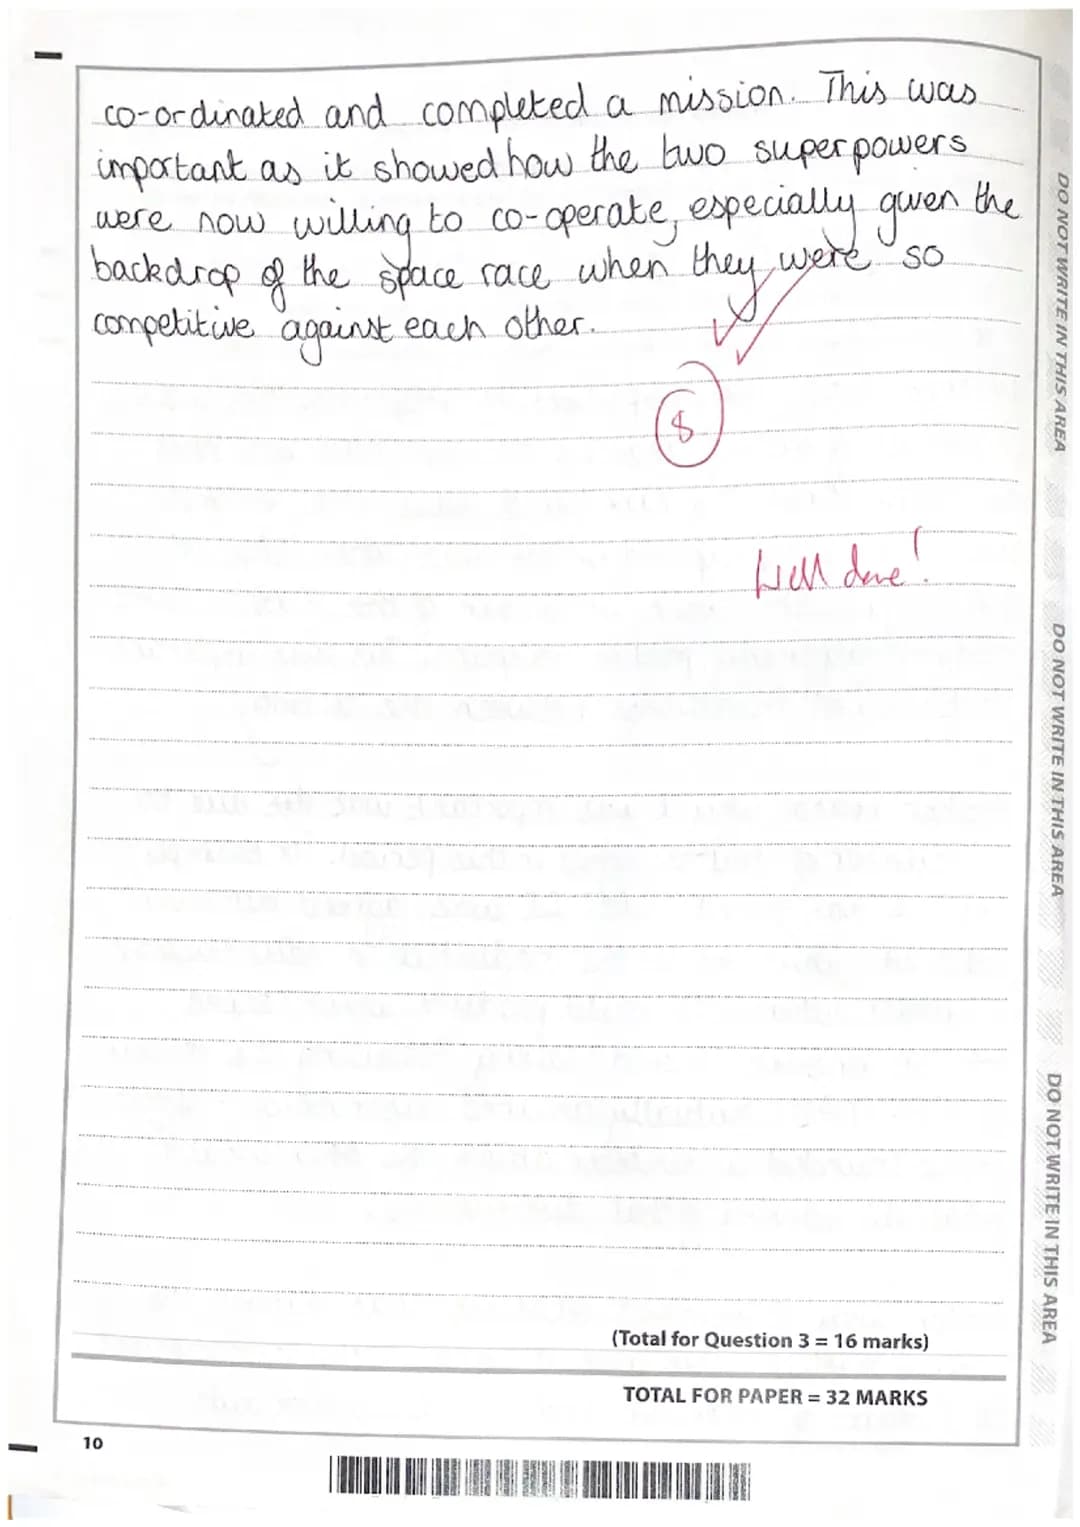 co-ordinated and completed a mission. This was
important as it showed how the two superpowers
were now willing to co-operate, especially given the
backdrop of the space race when they were so
competitive against each other.
8
Well done!
(Total for Question 3 = 16 marks)
TOTAL FOR PAPER = 32 MARKS
10
DO NOT WRITE IN THIS AREA
DO NOT WRITE IN THIS AREA
DO NOT WRITE IN THIS AREA